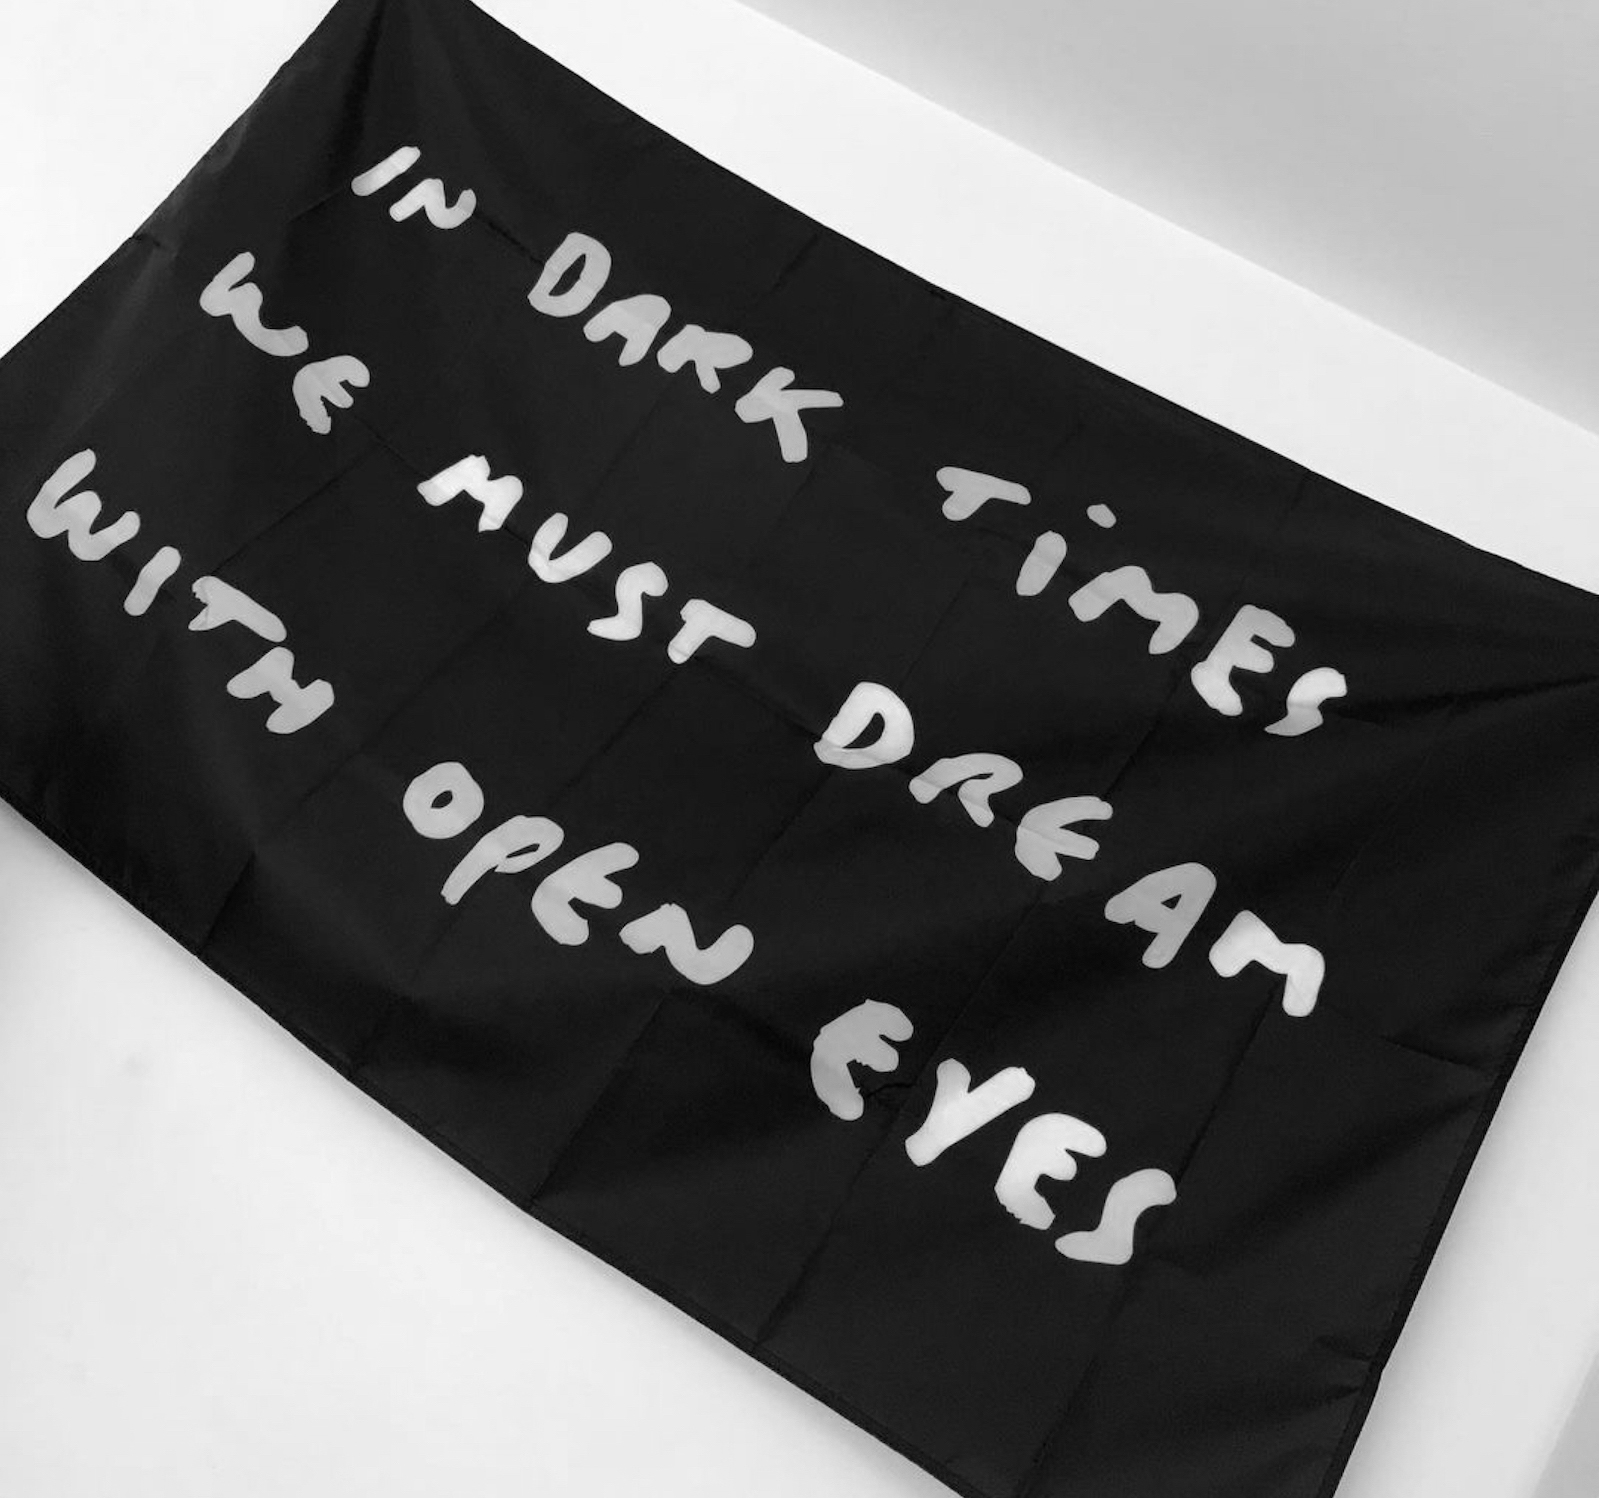 IN DARK TiMES
WE MUST DREAM
WITH OPEN EYES